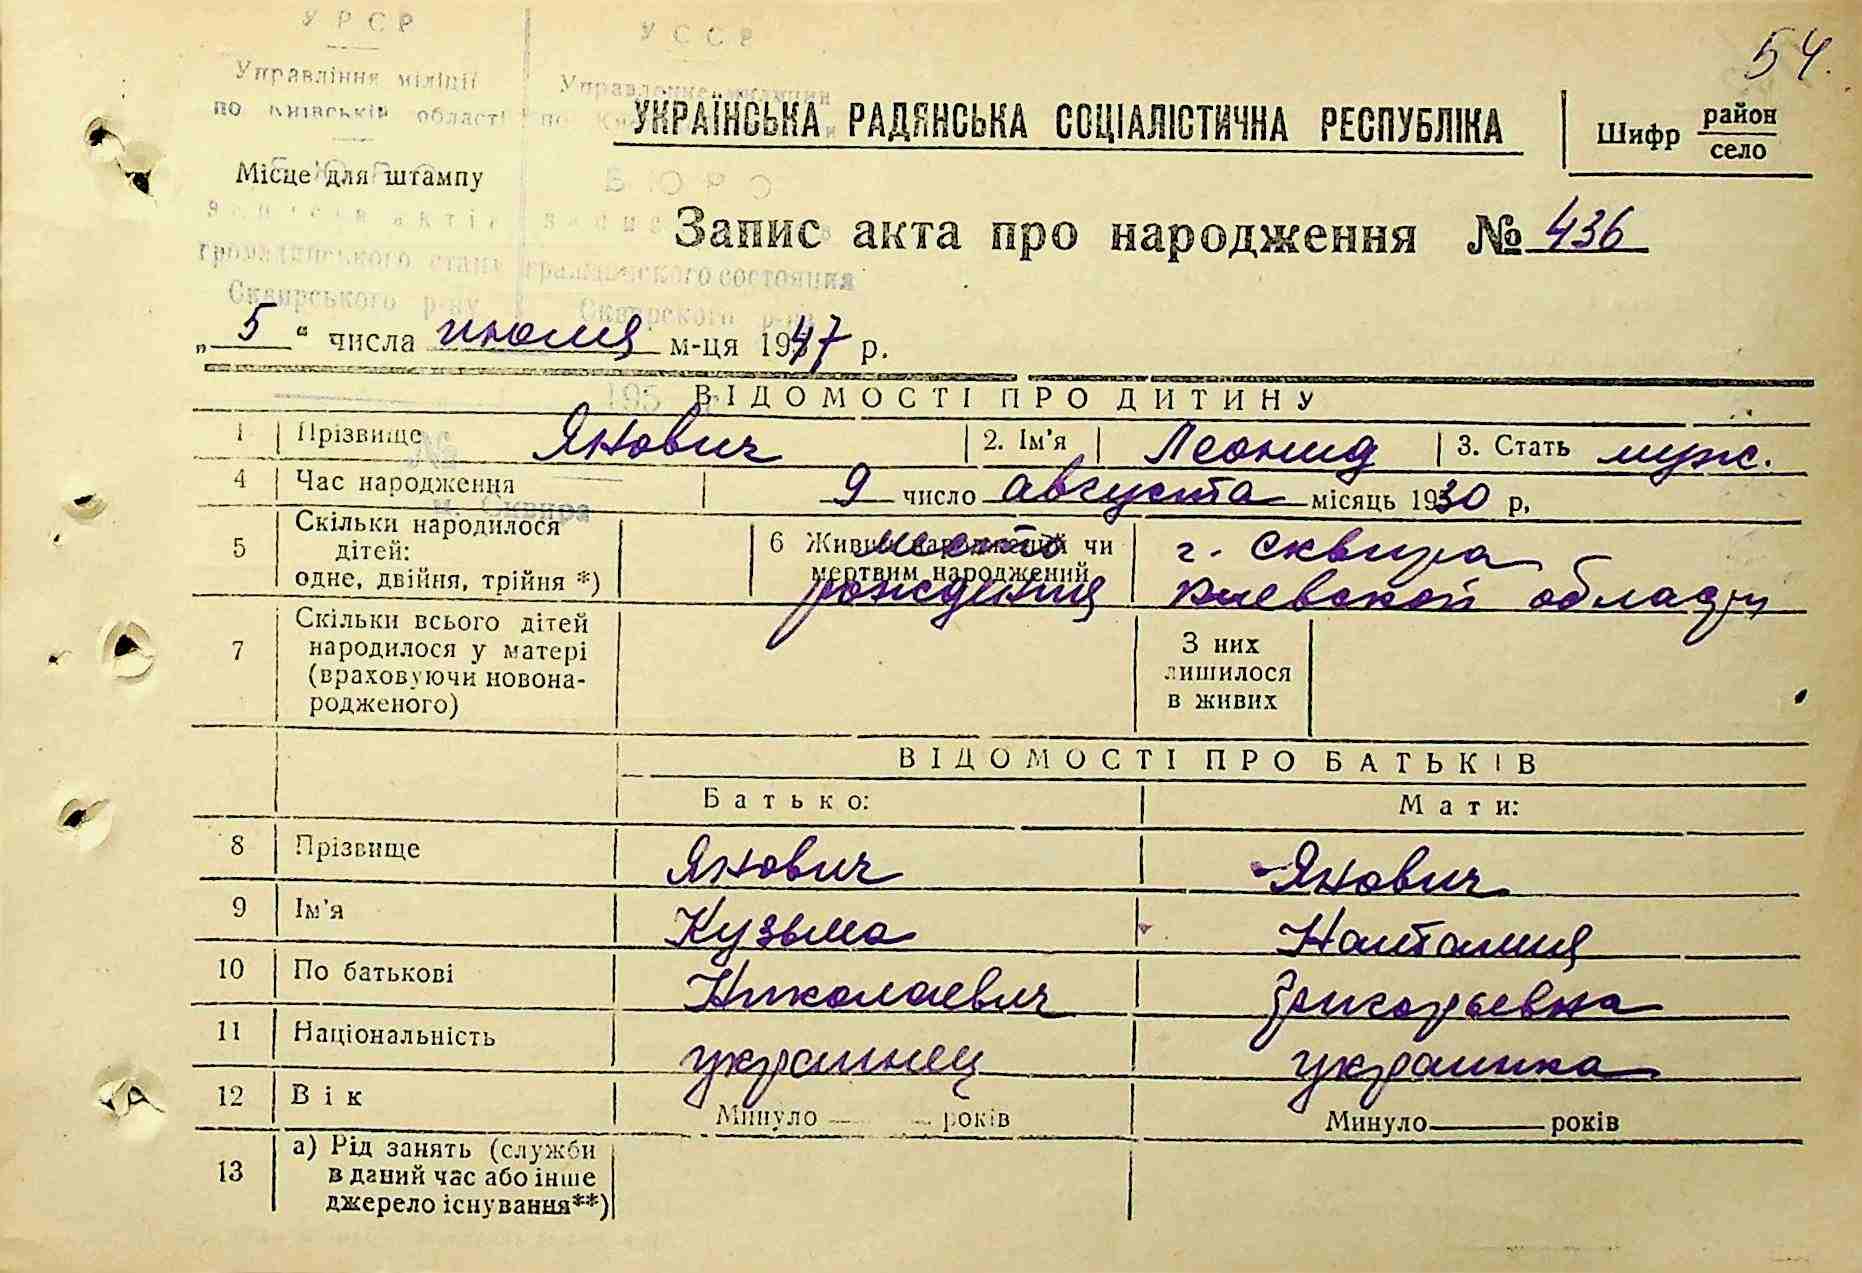 54.
УРСР
УССР
Управління міліції
Управление милиции
по Київській області
УКРАЇНСЬКА РАДЯНСЬКА СОЦІАЛІСТИЧНА РЕСПУБЛІКА
Шифр район
село
Місце для штампу
БЮРО
Запис акта про народження № 436
громадянського стану гражданского состояния
Сквирського р-ну Сквирского р-на
„ 5 “ числа июля м-ця 1947 р.
195
ВІДОМОСТІ ПРО ДИТИНУ
1 Прізвище Янович 2. Ім’я Леонид 3. Стать муж.
№
4 Час народження 9 число августа місяць 1930 р,
м. Сквира
5 Скільки народилося
дітей:
одне, двійня, трійня *)
6 Живим народжений чи
мертвим народжений
место
рождения
г. Сквира
Киевской области
7 Скільки всього дітей
народилося у матері
(враховуючи новона-
родженого)
З них
лишилося
в живих
ВІДОМОСТІ ПРО БАТЬКІВ
Батько: Мати:
8 Прізвище Янович Янович
9 Ім’я Кузьма Наталия
10 По батькові Николаевич Григорьевна
11 Національність украинец украинка
12 Вік Минуло років Минуло років
13 а) Рід занять (служби
в даний час або інше
джерело існування**)